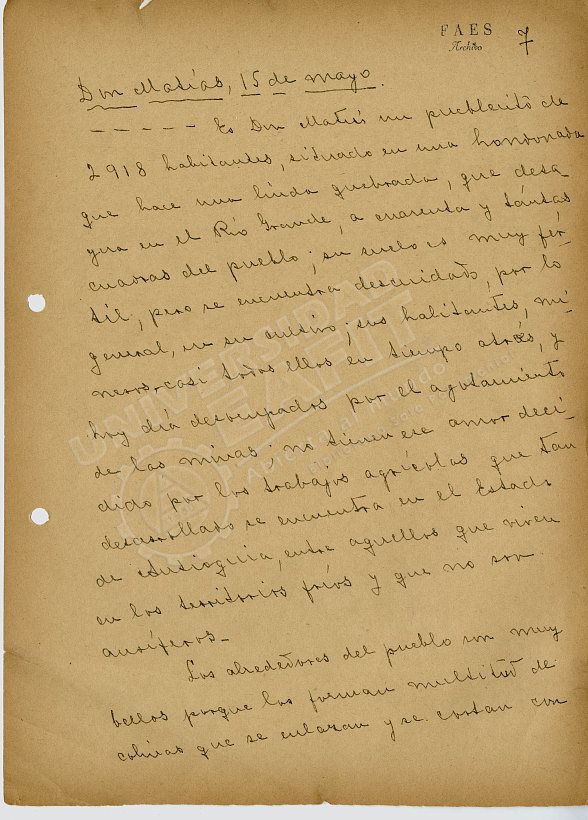 FAES
Archivo
7
Don Matías, 15 de mayo.
— — — — — Es Don Matías un pueblecito de
2918 habitantes, situado en una hondonada
que hace una linda quebrada, que desa
gua en el Río Grande, a cuarenta y tántas
cuadras del pueblo; su suelo es muy fér
til, pero se encuentra descuidado, por lo
general, en su cultivo; sus habitantes, mi
neros casi todos ellos en tiempo atrás, y
hoy día desocupados por el agotamiento
de las minas; no tienen ese amor deci
dido por los trabajos agrícolas que tan
desarrollado se encuentra en el Estado
de Antioquia, entre aquellos que viven
en los territorios fríos y que no son
auríferos.—
Los alrededores del pueblo son muy
bellos porque los forman multitud de
colinas que se enlazan y se cortan con
UNIVERSIDAD
EAFIT